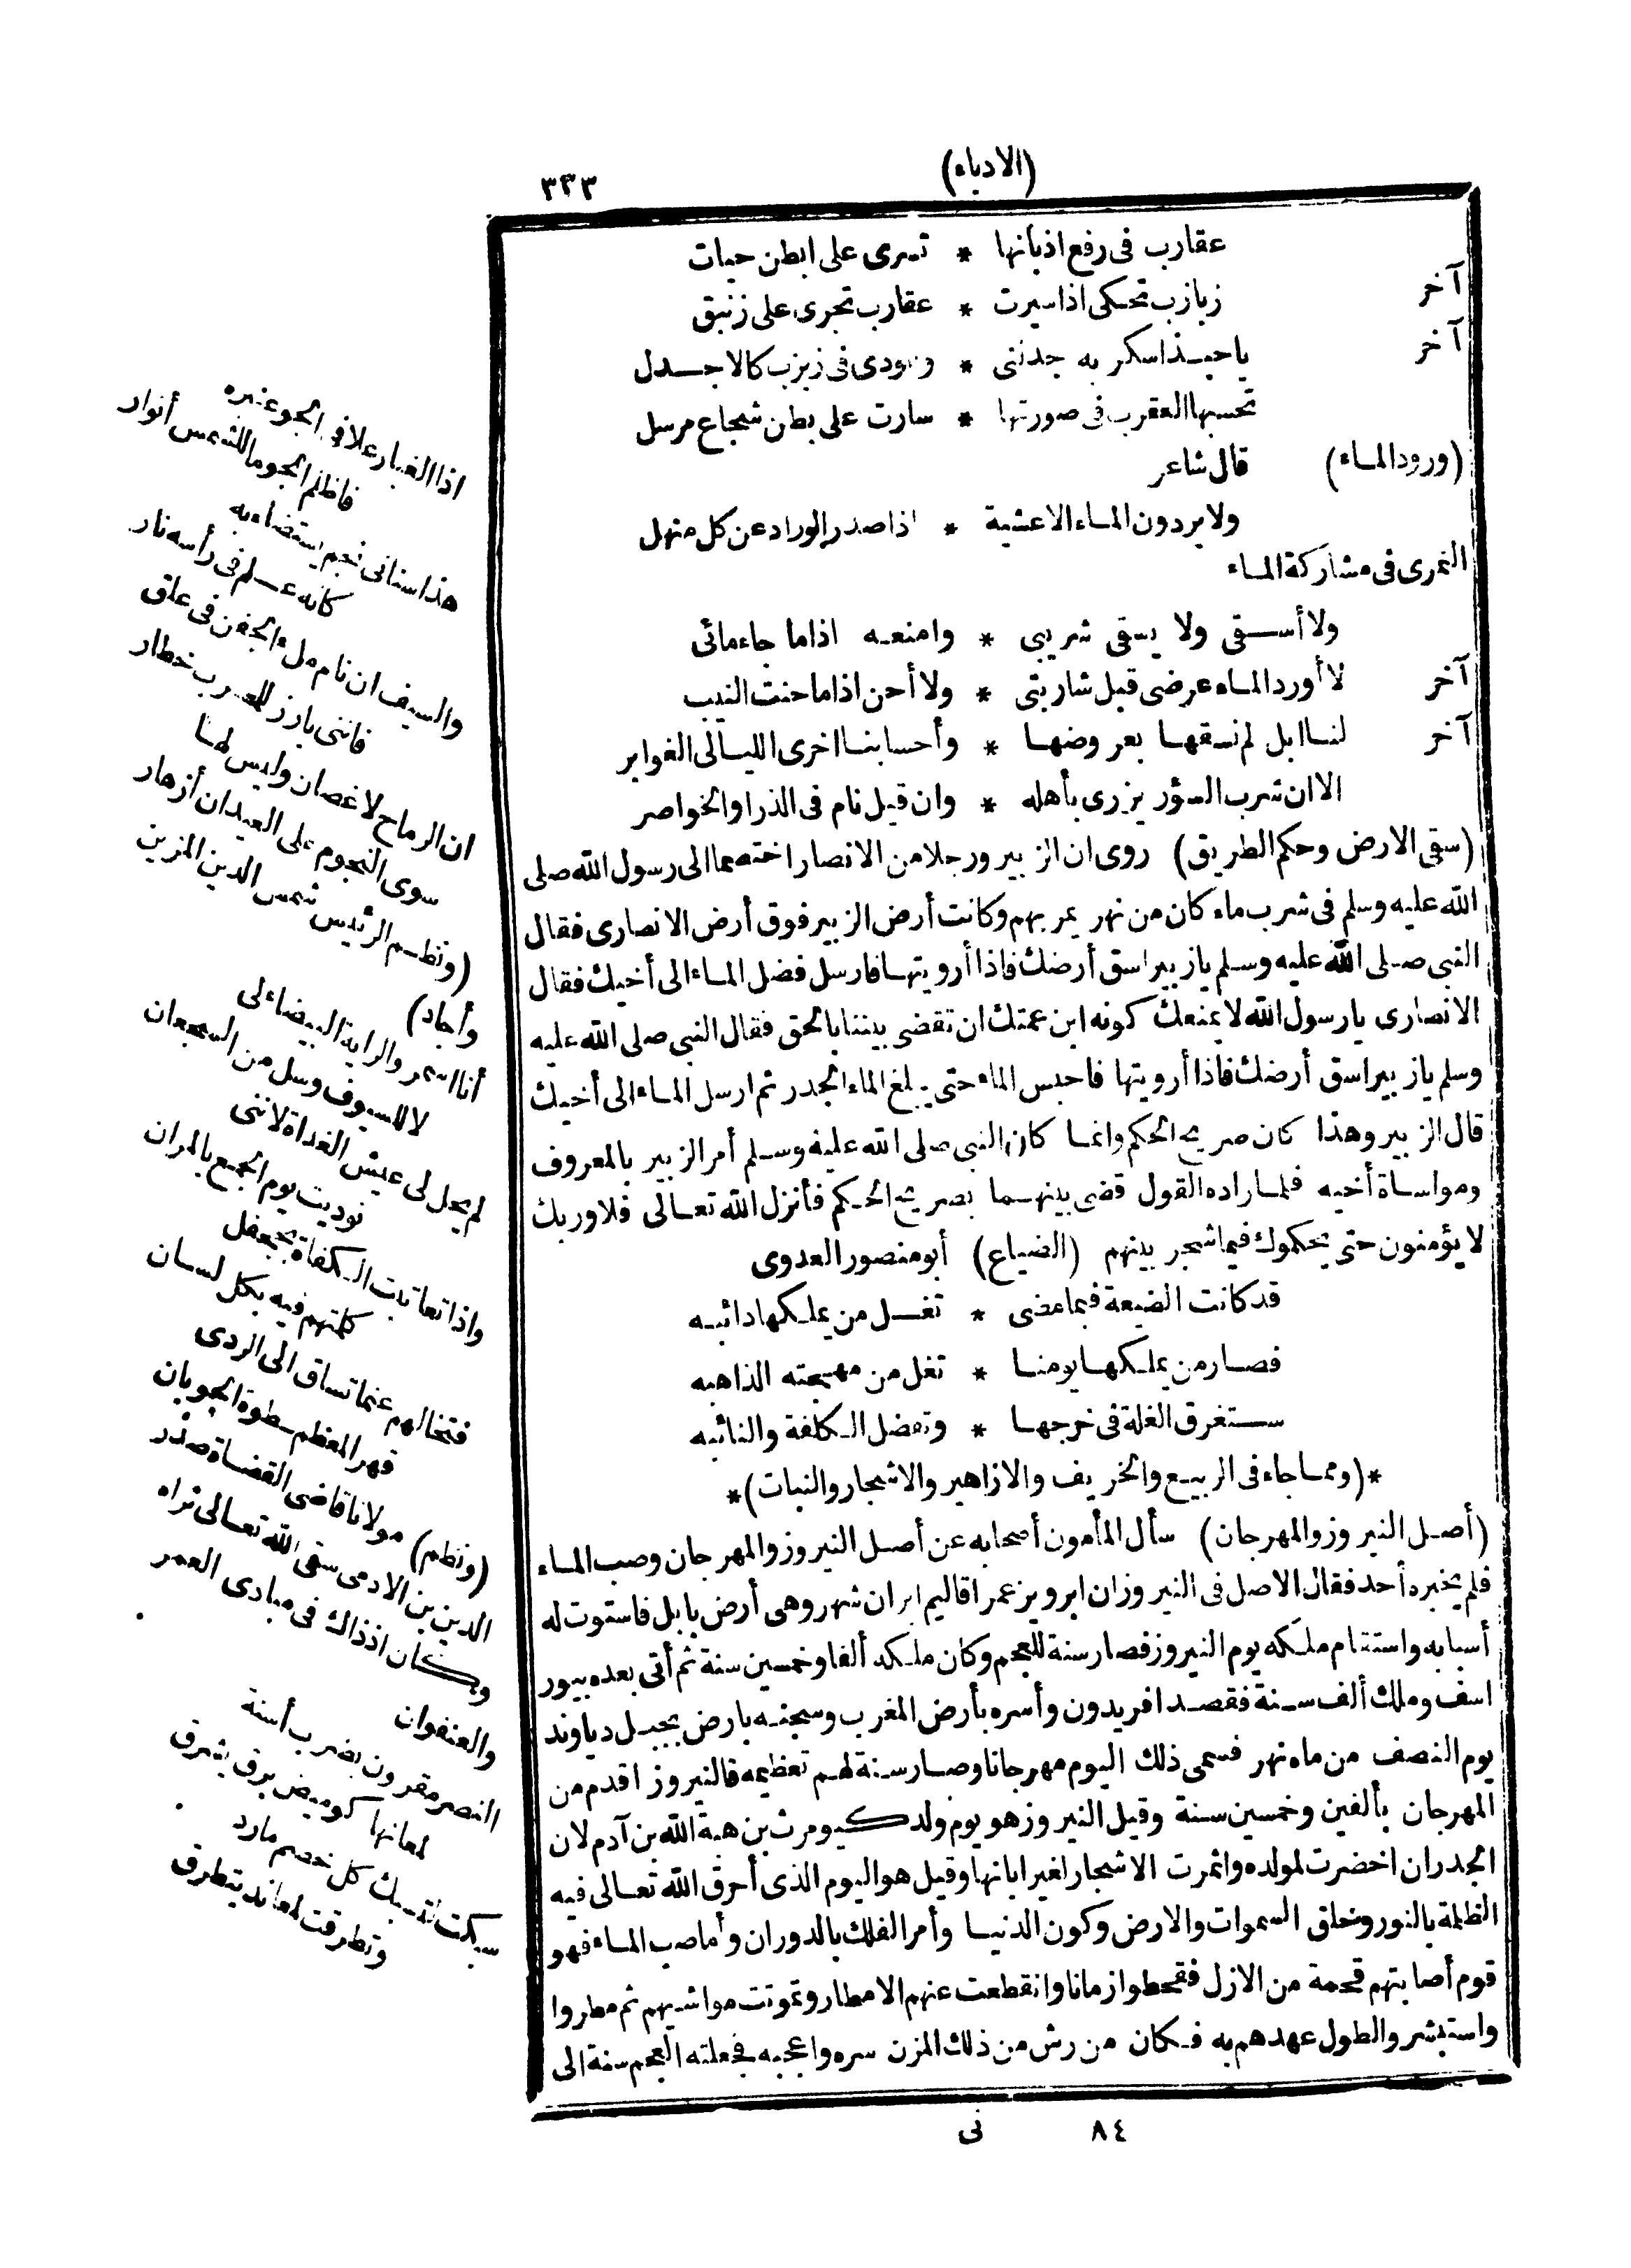 (الادباء)
٣٣٣
عقارب فى رفع اذنابها * تسرى على ابطن حيات
آخر
زبازب تحكى اذا سيرت * عقارب تجرى على زئبق
آخر
يا حبذا سكر به جدتنى * وعودى فى زبزب كالاجدل
تحسبها العقرب فى صورتها * سارت على بطن شجاع مرسل
(ورود الماء) قال شاعر
ولا يردون الماء الا عشية * اذا صدر الوراد عن كل منهل
النمرى فى مشاركة الماء
ولا أسقى ولا يسقى شريبى * وامنعه اذا ما جاء مائى
آخر لا أورد الماء عرضى قبل شاربتى * ولا أحن اذا ما حنت النيب
آخر لنا ابل لم نسقها بعروضها * وأحسابنا اخرى الليالى الغوابر
الا ان شرب السؤر يزرى بأهله * وان قيل نام فى الذرا والخواصر
(سقى الارض وحكم الطريق) روى ان الزبير ورجلا من الانصار اختصما الى رسول الله صلى
الله عليه وسلم فى شرب ماء كان من نهر يمر بهم وكانت أرض الزبير فوق أرض الانصارى فقال
النبى صلى الله عليه وسلم يازبير اسق أرضك فاذا أرويتها فارسل فضل الماء الى أخيك فقال
الانصارى يارسول الله لا يمنعك كونه ابن عمتك ان تقضى بيننا بالحق فقال النبى صلى الله عليه
وسلم يازبير اسق أرضك فاذا أرويتها فاحبس الماء حتى يبلغ الماء الجدر ثم ارسل الماء الى أخيك
قال الزبير وهذا كان صريح الحكم وانما كان النبى صلى الله عليه وسلم أمر الزبير بالمعروف
ومواساة أخيه فلما راده القول قضى بينهما بصريح الحكم فأنزل الله تعالى فلا وربك
لا يؤمنون حتى يحكموك فيما شجر بينهم (الضياع) أبو منصور العدوى
قد كانت الضيعة فيما مضى * تغل من يملكها دائبه
فصار من يملكها يومنا * تغل من مهجته الذاهبه
ستغرق الغلة فى خرجها * وتفضل الكلفة والنائبه
*(ومما جاء فى الربيع والخريف والازاهير والاشجار والنبات)*
(أصل النيروز والمهرجان) سأل المأمون أصحابه عن أصل النيروز والمهرجان وصب الماء
فلم يخبره أحد فقال الاصل فى النيروز ان ابرويز عمر اقاليم ايران شهر وهى أرض بابل فاستوت له
أسبابه واستتام ملكه يوم النيروز فصار سنة للعجم وكان ملكه ألفا وخمسين سنة ثم أتى بعده بيور
اسف وملك ألف سنة فقصد افريدون وأسره بأرض المغرب وسجنه بارض بجبل دياوند
يوم النصف من ماه نهر فسمى ذلك اليوم مهرجانا وصار سنة لهم تعظيمه فالنيروز اقدم من
المهرجان بألفين وخمسين سنة وقيل النيروز هو يوم ولد كيومرث بن هبة الله بن آدم لان
الجدران اخضرت لمولده واثمرت الاشجار لغير اباتها وقيل هو اليوم الذى أحرق الله تعالى فيه
الظلمة بالنور وخلق السموات والارض وكون الدنيا وأمر الفلك بالدوران وأما صب الماء فهو
قوم أصابتهم قحمة من الازل فقحطوا زمانا وانقطعت عنهم الامطار وتموتت مواشيهم ثم مطروا
واستبشروا لطول عهدهم به فكان من رش من ذلك المزن سره واعجبه فجعلته العجم سنة الى
٨٤ نى
اذا الغبار علا فى الجو عثيره
فاظلم الجو ما للشمس أنوار
هذا سنانى نجم يستضاء به
كانه علم فى رأسه نار
والسيف ان نام ملء الجفن فى علق
فاننى بارز للحرب خطار
ان الرماح لاغصان وليس لها
سوى النجوم على العيدان أزهار
(ونظم الرئيس شمس الدين المزين
وأجاد)
أنا اسمر والراية البيضاء لى
لا للسيوف وسل من الشجعان
لم يحل لى عيش الغداة لاننى
نوديت يوم الجمع بالمران
واذا تعاتبت الكفاة بجحفل
كلمتهم فيه بكل لسان
فتخالهم غنما تساق الى الردى
قهر المعظم سطوة الجوبان
(ونظم) مولانا قاضى القضاة صدر
الدين بن الادمى سقى الله تعالى ثراه
وكان اذ ذاك فى مبادى العمر
والعنفوان
النصر مقرون بضرب أسنة
لمعانها كوميض برق يشرق
سبكت لتسبك كل خصم مارد
وتطرقت لمعاند يتطرق